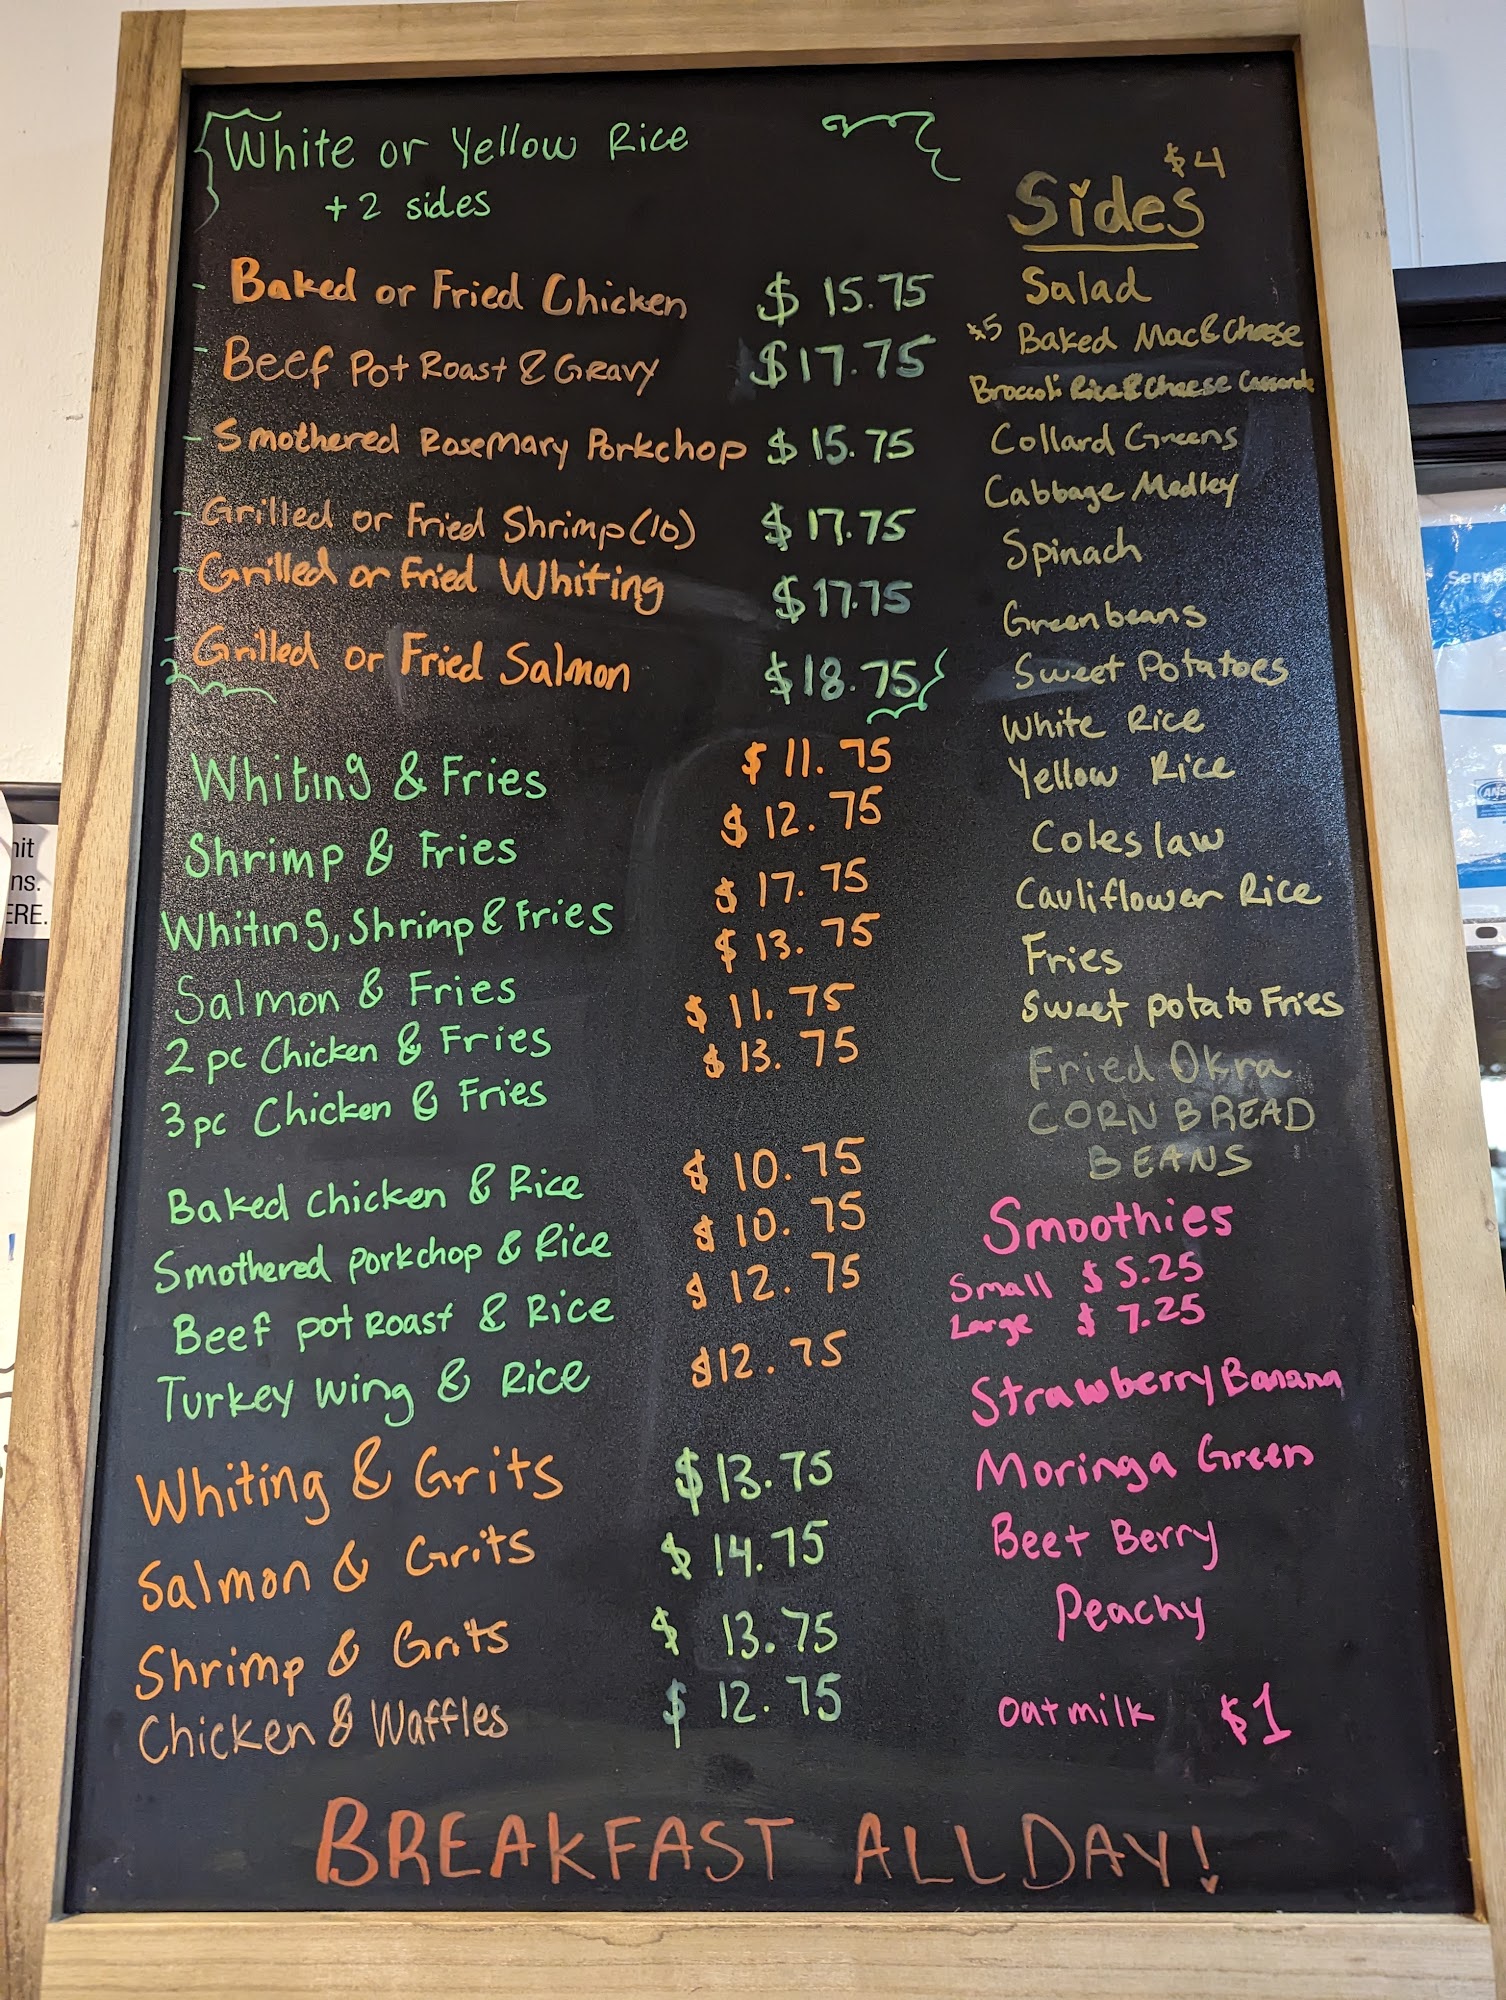 White or Yellow Rice
+ 2 sides
- Baked or Fried Chicken $ 15.75
- Beef Pot Roast & Gravy $17.75
- Smothered Rosemary Porkchop $ 15.75
- Grilled or Fried Shrimp (10) $ 17.75
- Grilled or Fried Whiting $17.75
- Grilled or Fried Salmon $18.75
Whiting & Fries $ 11.75
Shrimp & Fries $ 12.75
Whiting, Shrimp & Fries $ 17.75
Salmon & Fries $ 13.75
2 pc Chicken & Fries $ 11.75
3 pc Chicken & Fries $ 13.75
Baked Chicken & Rice $ 10.75
Smothered Porkchop & Rice $ 10.75
Beef pot Roast & Rice $ 12.75
Turkey Wing & Rice $12.75
Whiting & Grits $13.75
Salmon & Grits $ 14.75
Shrimp & Grits $ 13.75
Chicken & Waffles $ 12.75
$4
Sides
Salad
$5 Baked Mac & Cheese
Broccoli Rice & Cheese
Collard Greens
Cabbage Medley
Spinach
Greenbeans
Sweet Potatoes
White Rice
Yellow Rice
Coleslaw
Cauliflower Rice
Fries
Sweet potato Fries
Fried Okra
CORN BREAD
BEANS
Smoothies
Small $ 5.25
Large $ 7.25
Strawberry Banana
Moringa Green
Beet Berry
Peachy
Oatmilk $1
BREAKFAST ALL DAY!
ERE.